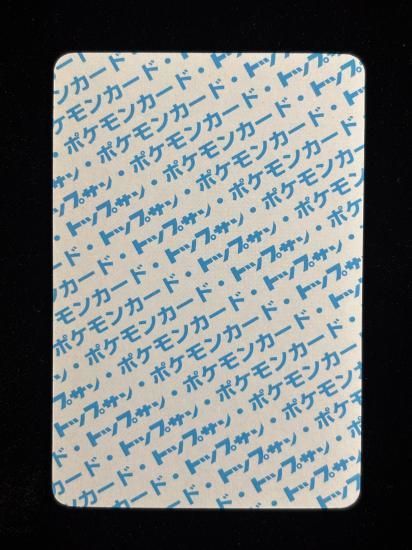 ンカード・トップサン
ケモンカード・トップサン
・ポケモンカード・トップ
プサン・ポケモンカード・
トップサン・ポケモンカード
・トップサン・ポケモンカ
ード・トップサン・ポケモ
ンカード・トップサン・ポケ
ケモンカード・トップサン・
・ポケモンカード・トップサン
プサン・ポケモンカード・ト
トップサン・ポケモンカード
・トップサン・ポケモンカー
ード・トップサン・ポケモン
ンカード・トップサン・ポ
トップサン